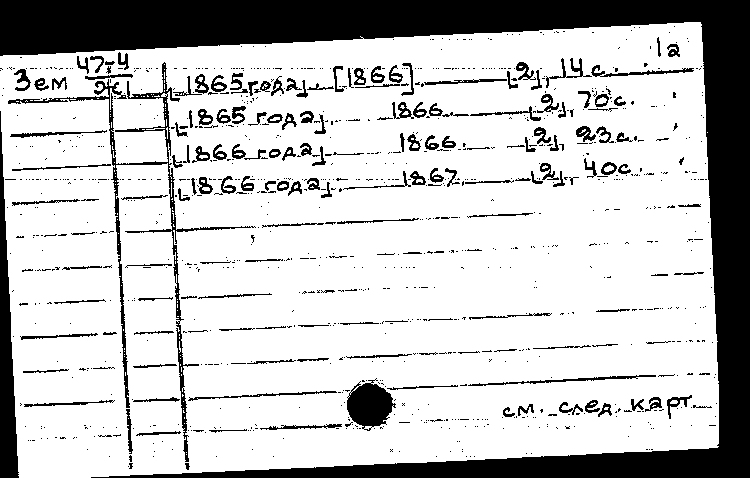 1а
Зем 47-4 ⌊1865 года⌋. [1866]. — ⌊2⌋, 14 с.
⌊1865 года⌋. 1866. — ⌊2⌋, 70с.
⌊1866 года⌋. — 1866. — ⌊2⌋, 23с.
⌊1866 года⌋. — 1867. — ⌊2⌋, 40с.
см. след. карт.